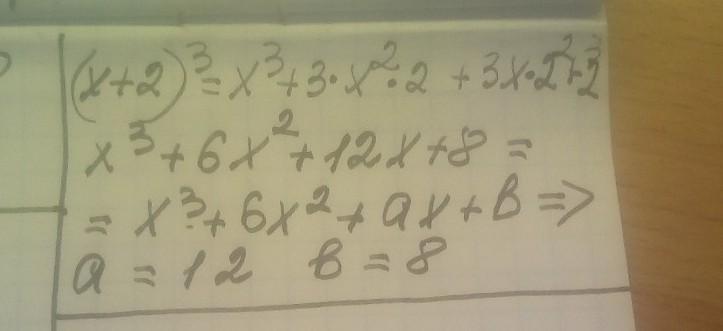 (x+2)³=x³+3·x²·2+3x·2²+2³
x³+6x²+12x+8=
=x³+6x²+ax+в=>
a=12 в=8